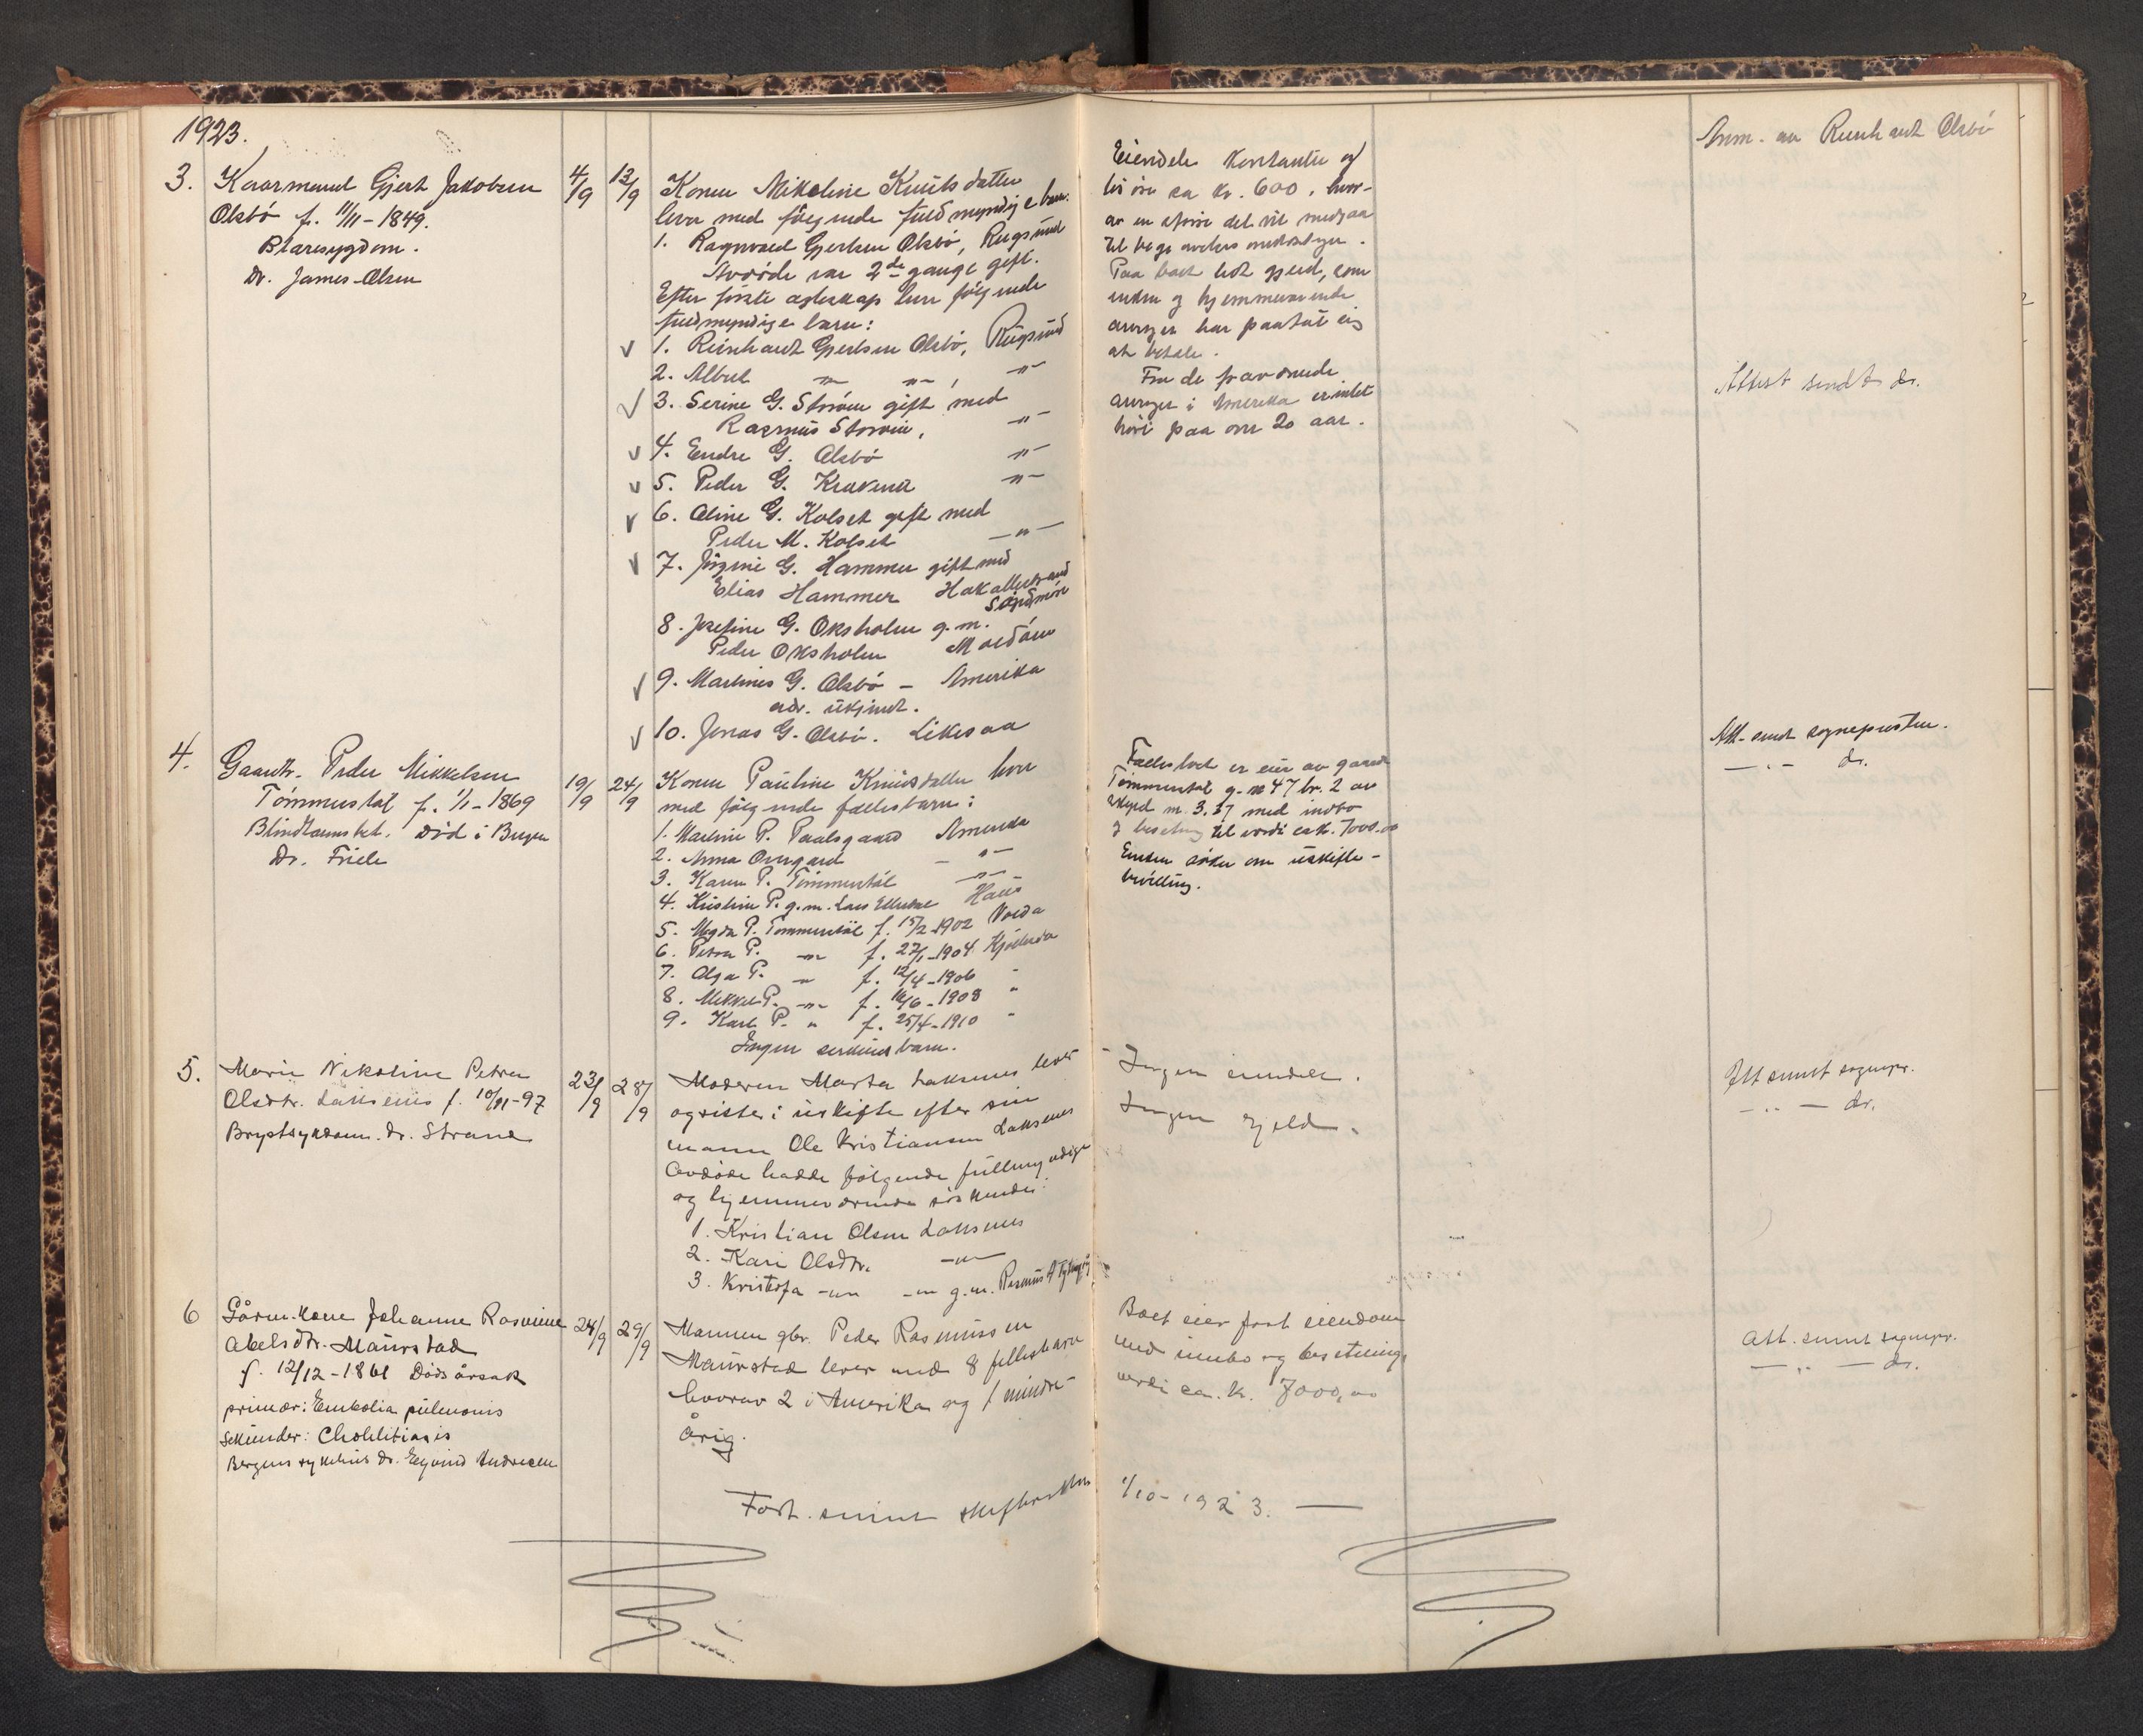 1923.
3. Kaarmand Gjert Jakobsen
Olsbö f. 11/11 - 1849.
Blæresygdom.
Dr. James-Olsen
4/9 13/9
Konen Mikeline Knutsdatter
lever med følgende fuldmyndige barn:
1. Ragnvald Gjertsen Olsbö, Rugsund
Avdöde var 2de gange gift.
Efter förste egteskap lever følgende
fuldmyndige barn:
1. Reinhardt Gjertsen Olsbö, Rugsund
2. Albert -"- -"-, -"-
3. Serine G. gift med
Rasmus -"-
4. Endre G. Olsbö -"-
5. Peder G. -"-
6. Oline G. Kolset gift med
Peder M. Kolset -"-
7. Jörgine G. Hammer gift med
Elias Hammer Hakallestrand
Söndmöre
8. Josefine G. Oksholm g. m.
Peder Oksholm
9. Martines G. Olsbö - Amerika
adr. ukjendt.
10. Jonas G. Olsbö. Likesaa
Eiendele kontanter og
lösöre ca kr. 600, hvor-
av en större del vil medgaa
til begravelses omkostninger.
Paa boet litt gjeld, som
enken og hjemmeværende
arvinger har paatat sig
at betale.
Fra de fraværende
arvinger i Amerika er intet
hört paa over 20 aar.
Anm. av Reinhardt Olsbö
Attest sendt dr.
4. Gaardbr. Peder Mikkelsen
Tömmerstöl f. 1/1 - 1869
Blindtarmsbet. Död i Bergen
Dr. Friele
19/9 24/9
Konen Pauline Knudsdatter lever
med følgende fællesbarn:
1. Martine P. Paalsgaard Amerika
2. Anna -"-
3. Karen P. Tömmerstöl -"-
4. Kristine P. g. m. Lars Haus
5. Magda P. Tömmerstöl f. 15/2-1902 Volda
6. Petra P. -"- f. 27/1-1904
7. Olga P. -"- f. 12/4-1906 "
8. Mikkel P. -"- f. /6-1908 "
9. Karl P. " f. 25/4-1910 "
Ingen særkuldsbarn.
Fællesboet er eier av gaard
Tömmerstöl g. nr 47 br. 2 av
skyld m. 3.27 med indbo
og besetning til værdi ca k. 7000.00
Enken söker om uskifte-
bevilling.
Att. sendt sogneprosten.
- " - dr.
5. Marie Nikoline Petra
Olsdtr. Laksenes f. 10/11-97
Brystsykdom. Dr. Strand
23/9 28/9
Moderen Marta Laksenes lever
og sitter i uskifte efter sin
mann Ole Kristiansen Laksenes
Avdöde hadde følgende fullmyndige
og hjemmeværende söskende:
1. Kristian Olsen Laksenes
2. Kari Olsdtr. -"-
3. Kristofa -"- -"- g. m. Rasmus A
Ingen eiendele.
Ingen gjeld.
Att sendt sognepr.
- " - dr.
6 Gårdm.kone Johanne Rasmine
Abelsdtr. Maurstad
f. 12/12 - 1861 Dödsårsak
primær: Embolia pulmonis
Sekunder: Cholelitiasis
Bergens sykehus dr. Eyvind Andresen
24/9 29/9
Mannen gbr. Peder Rasmussen
Maurstad lever med 8 fellesbarn
hvorav 2 i Amerika og 1 mindre-
årig.
Boet eier fast eiendom
med innbo og besetning
verdi ca. k. 7000,00
Att. sendt sognepr.
- " - dr.
Fort. sendt 1/10-1923. —